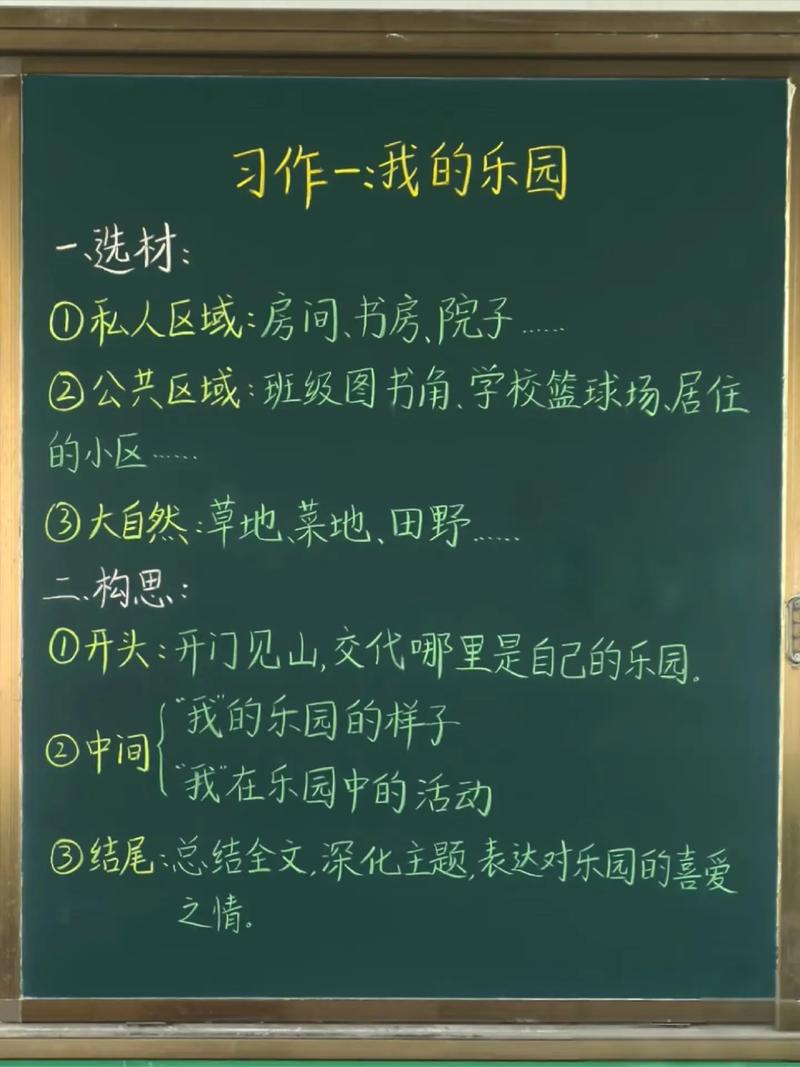 习作一:我的乐园
一、选材:
①私人区域:房间、书房、院子……
②公共区域:班级图书角、学校篮球场、居住
的小区……
③大自然:草地、菜地、田野……
二、构思:
①开头:开门见山,交代哪里是自己的乐园。
②中间{“我”的乐园的样子
“我”在乐园中的活动
③结尾:总结全文,深化主题,表达对乐园的喜爱
之情。